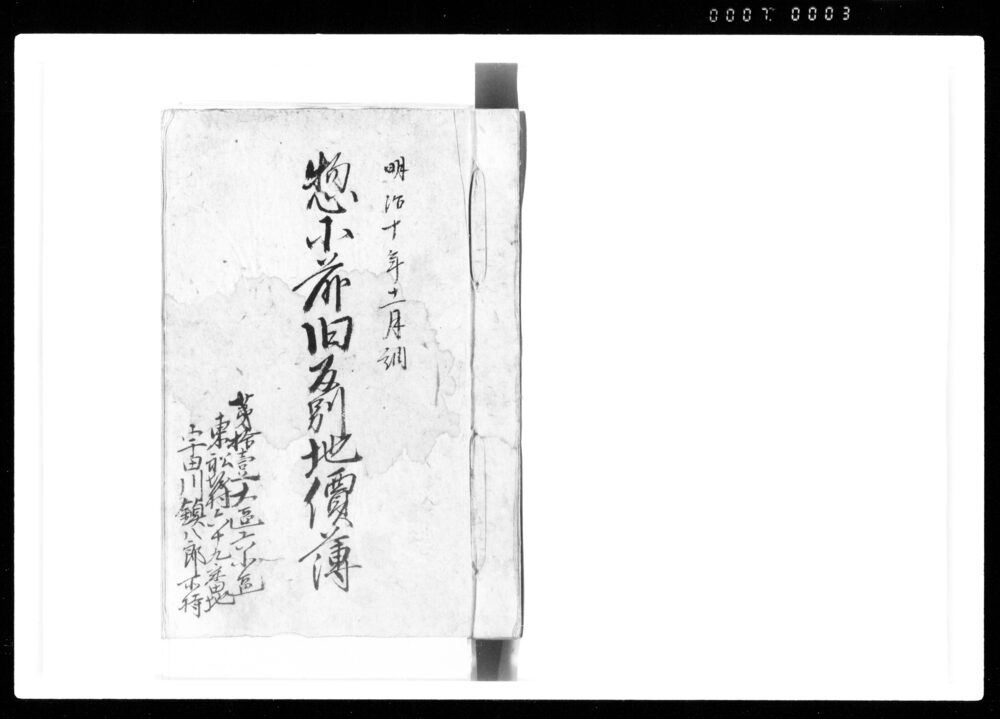 0007 0003
明治十年十一月調
惣小前旧反別地價簿
第拾壹大區六小區
東舩堀村六十九番地
宇田川鎮八郎所持